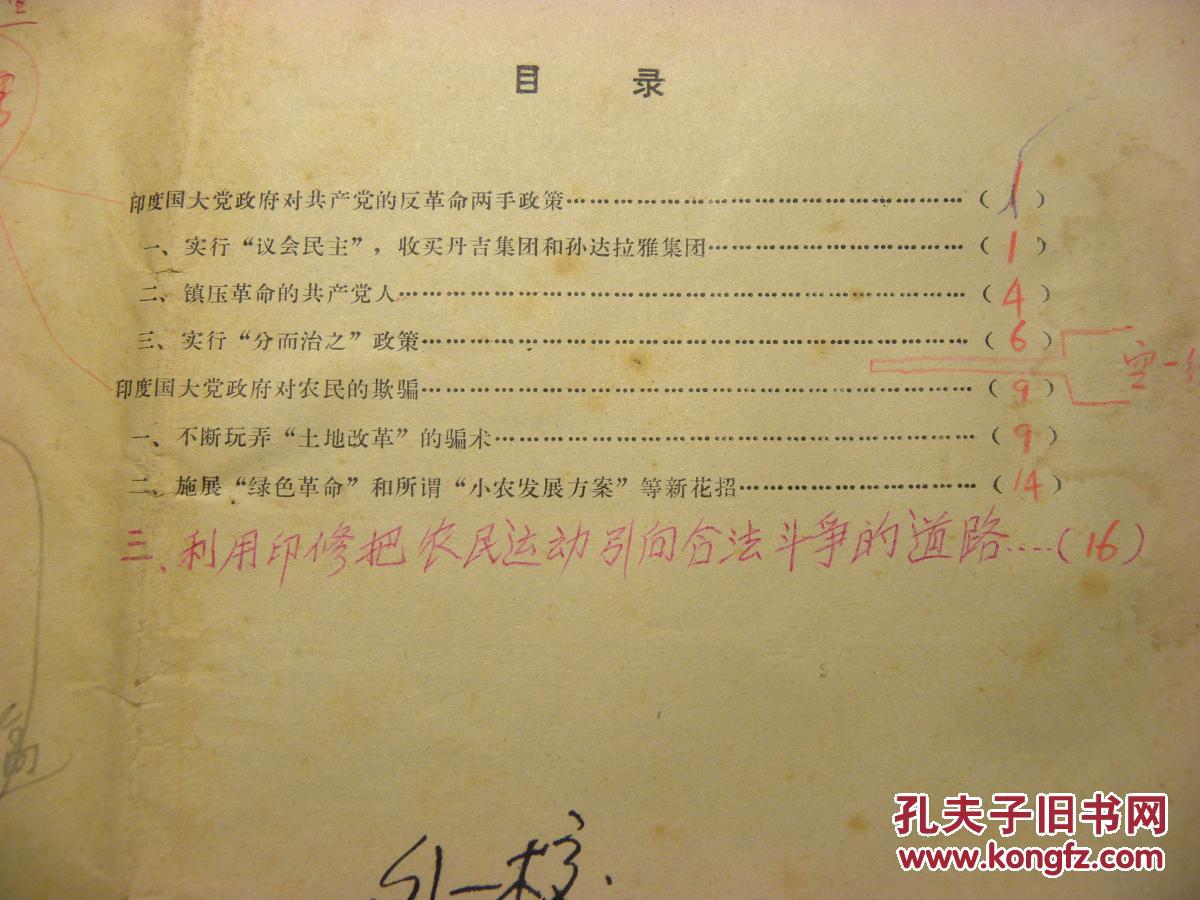 目 录
印度国大党政府对共产党的反革命两手政策……………………………………………( 1 )
一、实行“议会民主”，收买丹吉集团和孙达拉雅集团……………………………( 1 )
二、镇压革命的共产党人………………………………………………………………( 4 )
三、实行“分而治之”政策……………………………………………………………( 6 )
空一
印度国大党政府对农民的欺骗…………………………………………………………( 9 )
一、不断玩弄“土地改革”的骗术……………………………………………………( 9 )
二、施展“绿色革命”和所谓“小农发展方案”等新花招…………………………( 14 )
三、利用印修把农民运动引向合法斗争的道路……( 16 )
孔夫子旧书网
www.kongfz.com